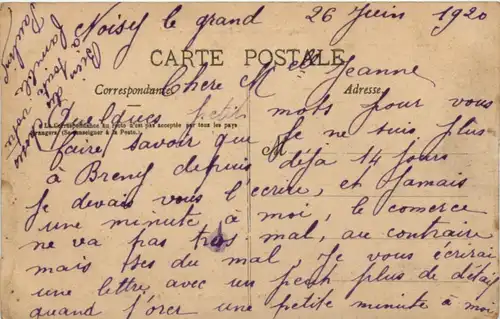 Noisy le grand 26 Juin 1920
CARTE POSTALE
Chere Melle Jeanne
Correspondance Adresse
Quelques petit mots pour vous
La Correspondance au recto n'est pas acceptée par tous les pays
étrangers (Se renseigner à la Poste.)
faire savoir que Je ne suis plus
M
à Breny depuis déja 14 jours
Je devais vous l'écrire, et Jamais
une minute à moi, le comerce
ne va pas tros mal, au contraire
mais du mal, Je vous écrirai
une lettre avec un peut plus de détai
quand J'orer une petite minute à moi
Bien du
à toute votre
famille
Pauline